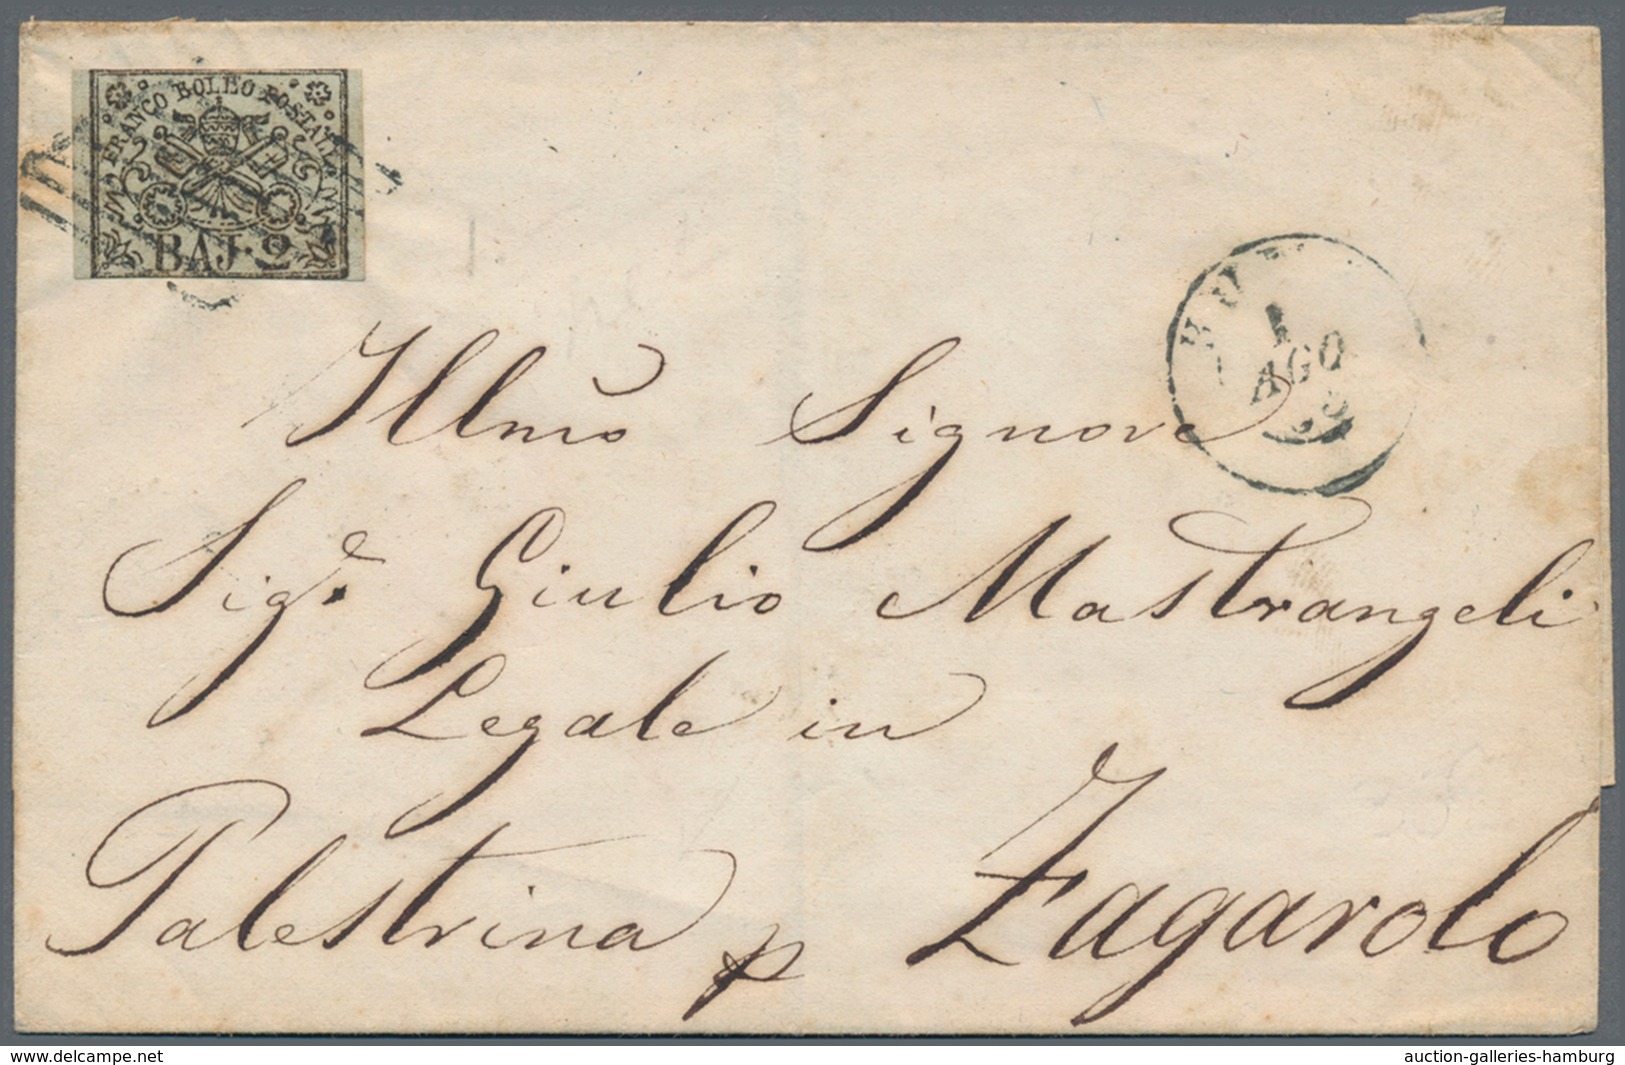 FRANCO BOLLO POSTALE
BAJ·2
1
AGO
Illmo Signore
Sigr. Giulio Mastrangeli
Legale in
Palestrina p Zagarolo
www.delcampe.net
auction-galleries-hamburg